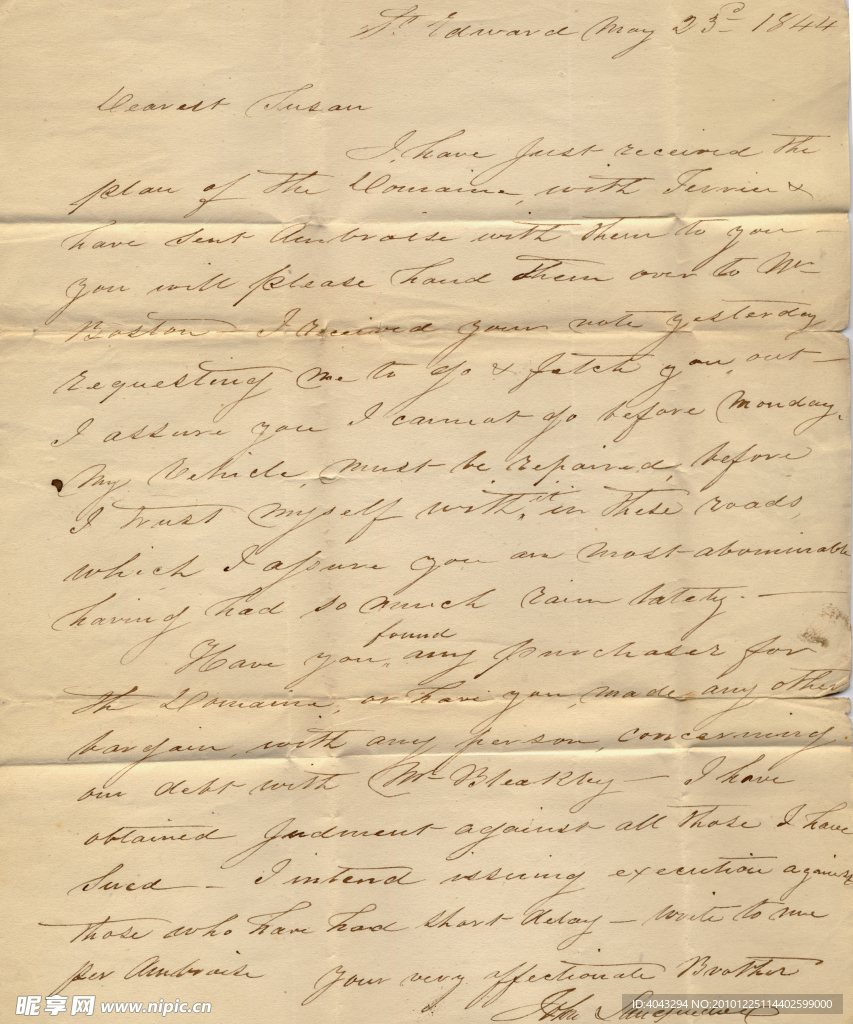 St Edward May 23d 1844
Dearest Susan
I have just received the
plan of the Domaine, with Terrier &
have sent Ambroise with them to you —
you will please hand them over to Mr
Boston — I received your note yesterday
requesting me to go & fetch you out —
I assure you I cannot go before Monday.
My Vehicle, must be repaired, before
I trust myself with it in these roads,
which I assure you are most abominable
having had so much rain lately. —
Have you found any purchaser for
the Domaine, or have you made any other
bargain, with any person, concerning
our debt with Mr Bleakley — I have
obtained Judment against all those I have
Sued — I intend issuing execution against
those who have had short delay — write to me
per Ambroise
your very affectionate Brother
John
昵享网 www.nipic.cn
ID:4043294 NO:20101225114402599000